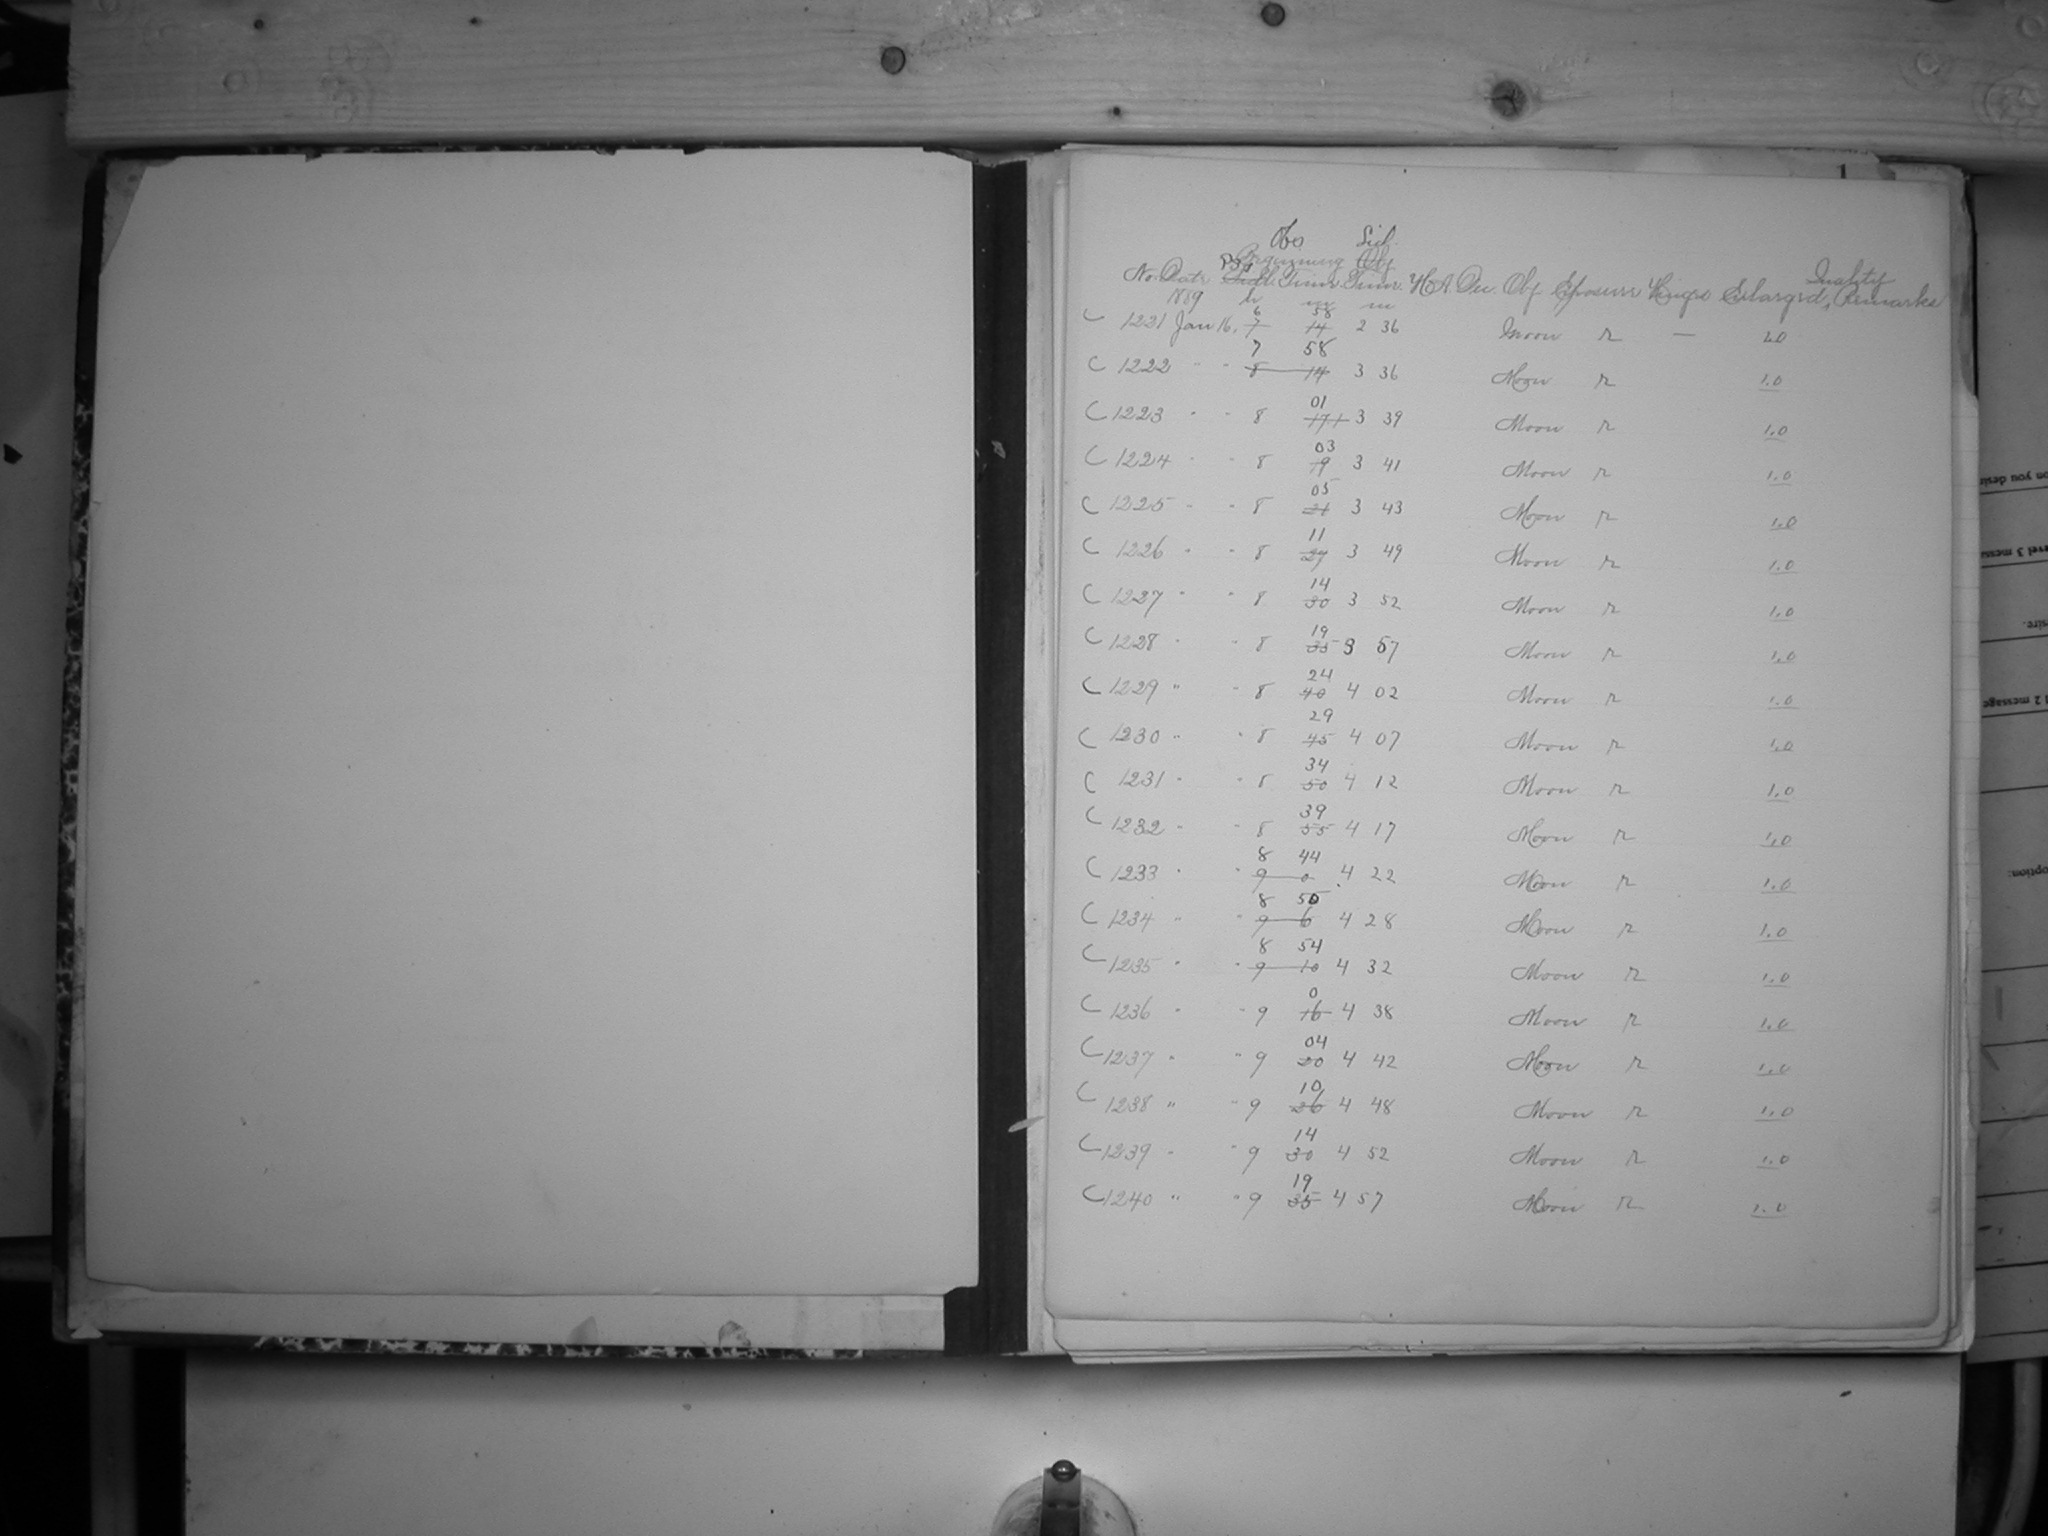 Obs Sid.
Beginning Obs
No. Date Sidl. Time Time H.A. Dec. Obj Exposure Hinge Enlarged, Quality Remarks
1889 h m m
6 38
C 1221 Jan 16, 7 14 2 36 Moon r — 1.0
7 58
C 1222 " " 8 14 3 36 Moon r 1.0
01
C 1223 " " 8 17 3 39 Moon r 1.0
03
C 1224 " " 8 19 3 41 Moon r 1.0
05
C 1225 " " 8 21 3 43 Moon r 1.0
11
C 1226 " " 8 27 3 49 Moon r 1.0
14
C 1227 " " 8 30 3 52 Moon r 1.0
19
C 1228 " " 8 35 3 57 Moon r 1.0
24
C 1229 " " 8 40 4 02 Moon r 1.0
29
C 1230 " " 8 45 4 07 Moon r 1.0
34
C 1231 " 8 50 4 12 Moon r 1.0
39
C 1232 " " 8 55 4 17 Moon r 1.0
8 44
C 1233 " " 9 0 4 22 Moon r 1.0
8 50
C 1234 " " 9 6 4 28 Moon r 1.0
8 54
C 1235 " " 9 10 4 32 Moon r 1.0
0
C 1236 " " 9 16 4 38 Moon r 1.0
04
C 1237 " " 9 20 4 42 Moon r 1.0
10
C 1238 " " 9 26 4 48 Moon r 1.0
14
C 1239 " " 9 30 4 52 Moon r 1.0
19
C 1240 " " 9 35 4 57 Moon r 1.0
on you desire
level 3 messa
sire.
l 2 message
option: